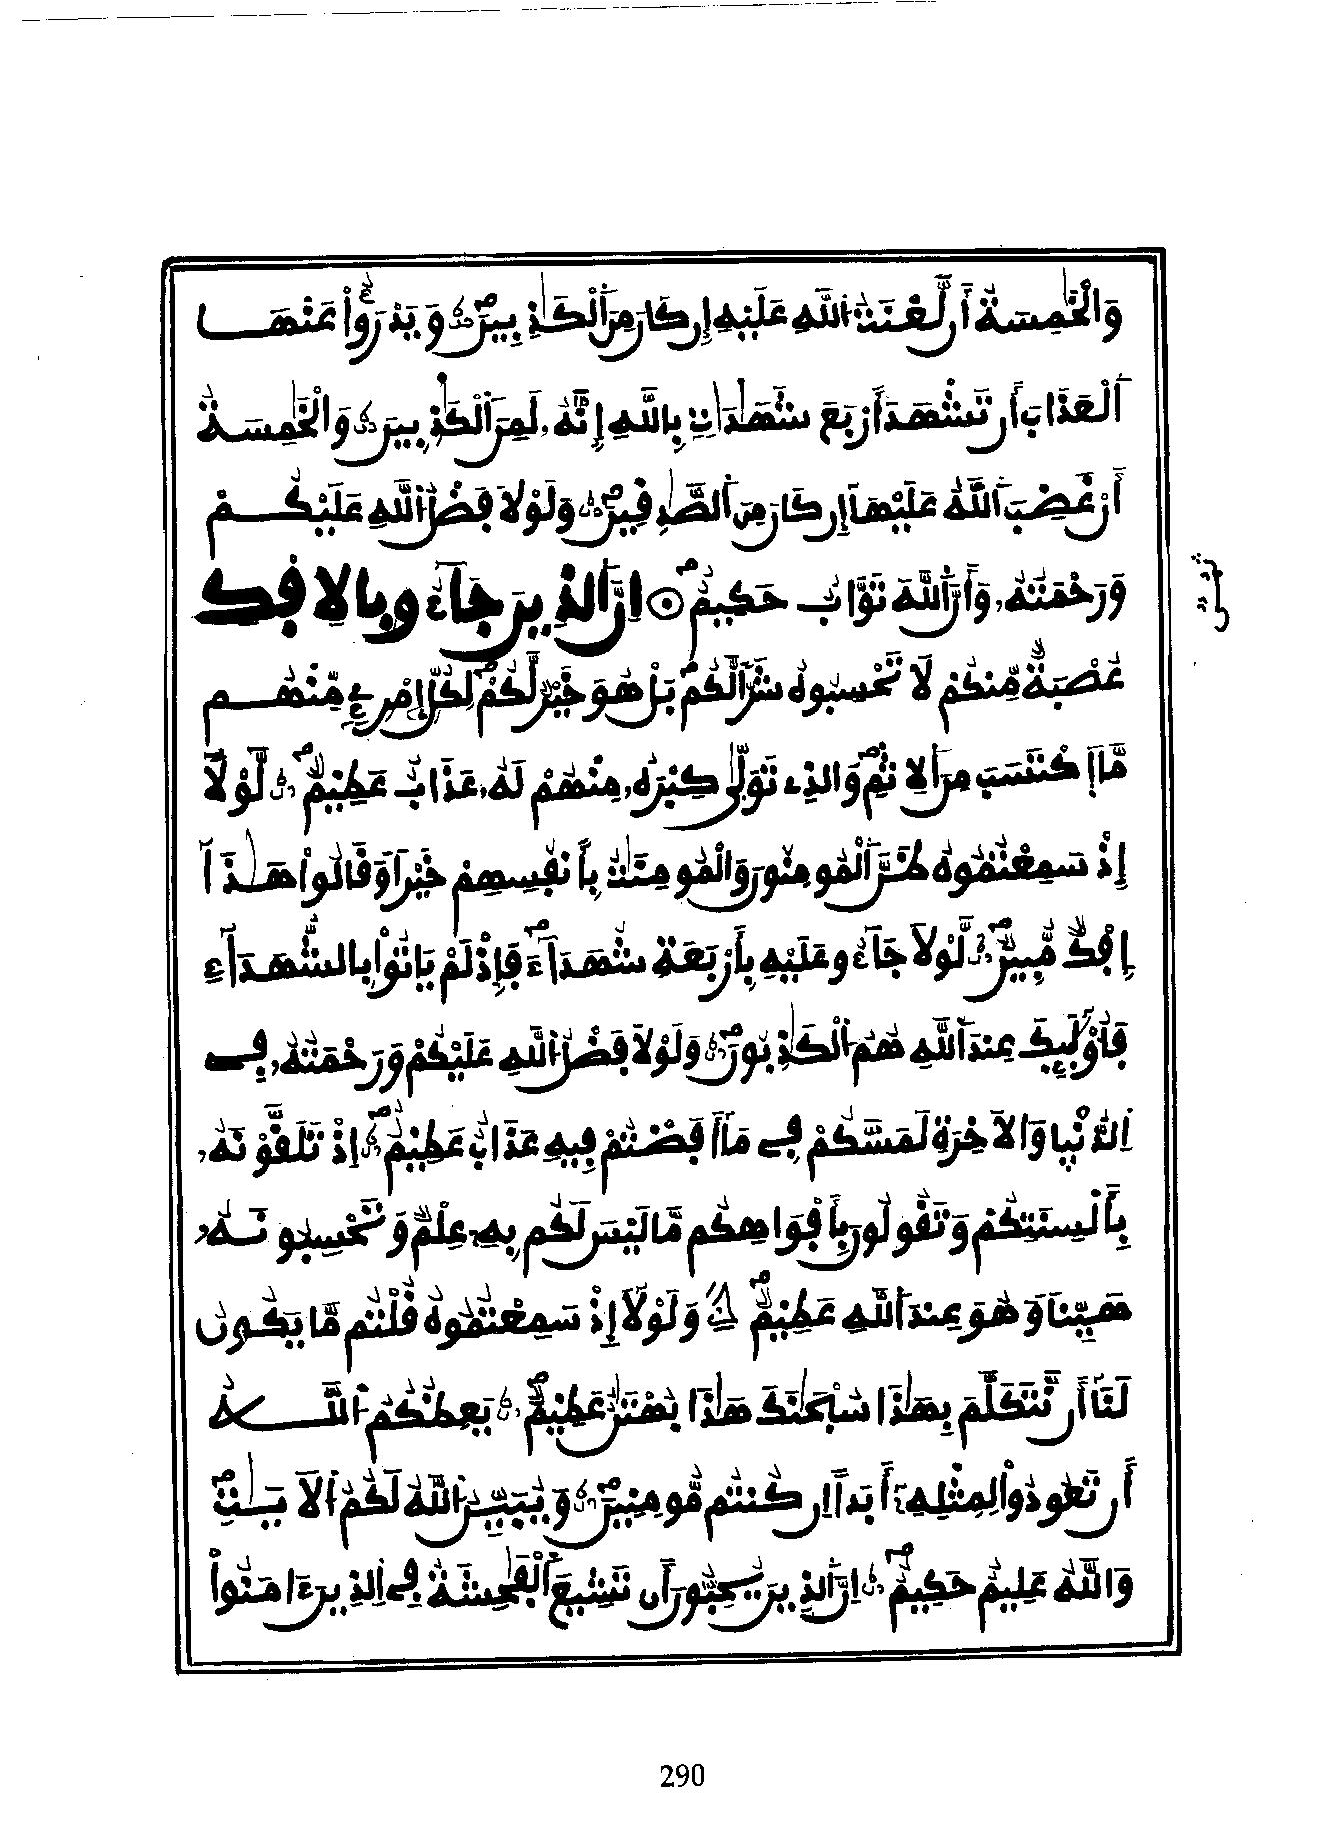 وَالْخَٰمِسَةُ أَن لَّعْنَتَ اَ۬للَّهِ عَلَيْهِ إِن كَانَ مِنَ اَ۬لْكَٰذِبِينَۖ وَيَدْرَؤُاْ عَنْهَا
اَ۬لْعَذَابَ أَن تَشْهَدَ أَرْبَعَ شَهَٰدَٰتِۢ بِاللَّهِ إِنَّهُۥ لَمِنَ اَ۬لْكَٰذِبِينَ وَالْخَٰمِسَةُ
أَنْ غَضِبَ اَ۬للَّهُ عَلَيْهَا إِن كَانَ مِنَ اَ۬لصَّٰدِقِينَۖ وَلَوْلَا فَضْلُ اُ۬للَّهِ عَلَيْكُمْ
وَرَحْمَتُهُۥ وَأَنَّ اَ۬للَّهَ تَوَّابٌ حَكِيمٌۖ إِنَّ اَ۬لذِينَ جَآءُو بِالِافْكِ
عُصْبَةٌ مِّنكُمْ لَا تَحْسِبُوهُ شَرّاٗ لَّكُمۖ بَلْ هُوَ خَيْرٞ لَّكُمْۖ لِكُلِّ اِ۪مْرِےٕٖ مِّنْهُم
مَّا اَ۪كْتَسَبَ مِنَ اَ۬لِاثْمِۖ وَالذِے تَوَلَّىٰ كِبْرَهُۥ مِنْهُمْ لَهُۥ عَذَابٌ عَظِيمٞۖ لَّوْلَا
إِذْ سَمِعْتُمُوهُ ظَنَّ اَ۬لْمُومِنُونَ وَالْمُومِنَٰتُ بِأَنفُسِهِمْ خَيْراٗ وَقَالُواْ هَٰذَا
إِفْكٞ مُّبِينٞۖ لَّوْلَا جَآءُو عَلَيْهِ بِأَرْبَعَةِ شُهَدَآءَۖ فَإِذْ لَمْ يَاتُواْ بِالشُّهَدَآءِ
فَأُوْلَٰٓئِكَ عِندَ اَ۬للَّهِ هُمُ اُ۬لْكَٰذِبُونَۖ وَلَوْلَا فَضْلُ اُ۬للَّهِ عَلَيْكُمْ وَرَحْمَتُهُۥ فِے
اِ۬لدُّنْيَا وَالَاخِرَةِ لَمَسَّكُمْ فِے مَا أَفَضْتُمْ فِيهِ عَذَابٌ عَظِيمٌۖ إِذْ تَلَقَّوْنَهُۥ
بِأَلْسِنَتِكُمْ وَتَقُولُونَ بِأَفْوَاهِكُم مَّا لَيْسَ لَكُم بِهِۦ عِلْمٞ وَتَحْسِبُونَهُۥ
هَيِّناٗ وَهُوَ عِندَ اَ۬للَّهِ عَظِيمٞۖ وَلَوْلَا إِذْ سَمِعْتُمُوهُ قُلْتُم مَّا يَكُونُ
لَنَا أَن نَّتَكَلَّمَ بِهَٰذَا سُبْحَٰنَكَ هَٰذَا بُهْتَٰنٌ عَظِيمٞۖ يَعِظُكُمُ اُ۬للَّهُ
أَن تَعُودُواْ لِمِثْلِهِۦ أَبَداً اِن كُنتُم مُّومِنِينَۖ وَيُبَيِّنُ اُ۬للَّهُ لَكُمُ اُ۬لَايَٰتِۖ
وَاللَّهُ عَلِيمٌ حَكِيمٌۖ إِنَّ اَ۬لذِينَ يُحِبُّونَ أَن تَشِيعَ اَ۬لْفَٰحِشَةُ فِے اِ۬لذِينَ ءَامَنُواْ
290